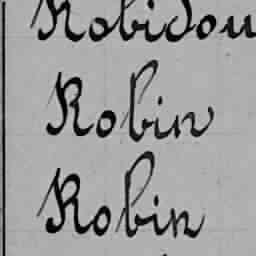 Robidou
Robin
Robin